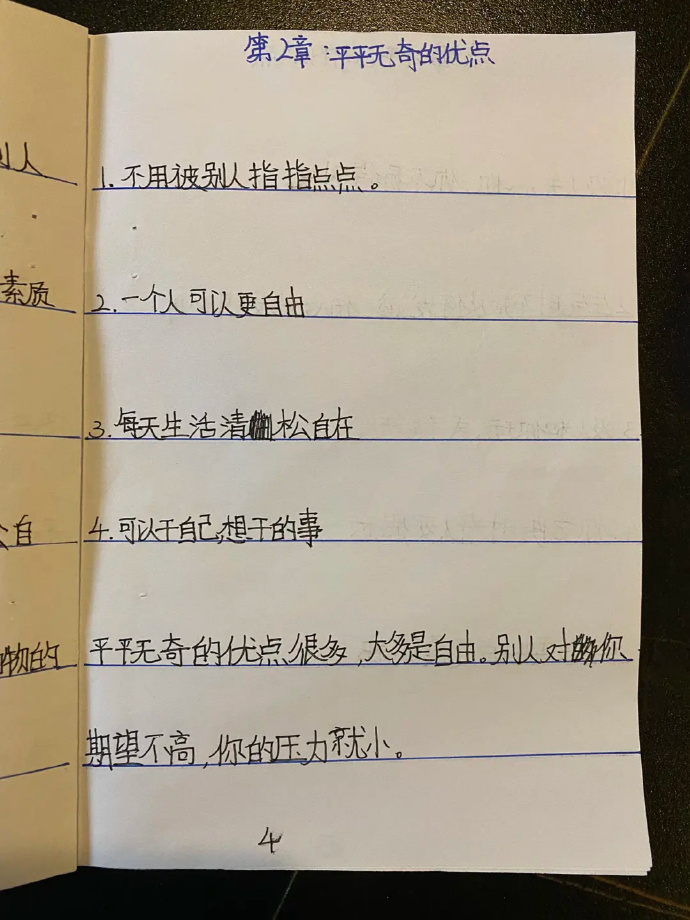 第2章：平平无奇的优点
1. 不用被别人指指点点。
2. 一个人可以更自由
3. 每天生活清松自在
4. 可以干自己想干的事
平平无奇的优点很多，大多是自由。别人对你
期望不高，你的压力就小。
4
人
素质
自
物的